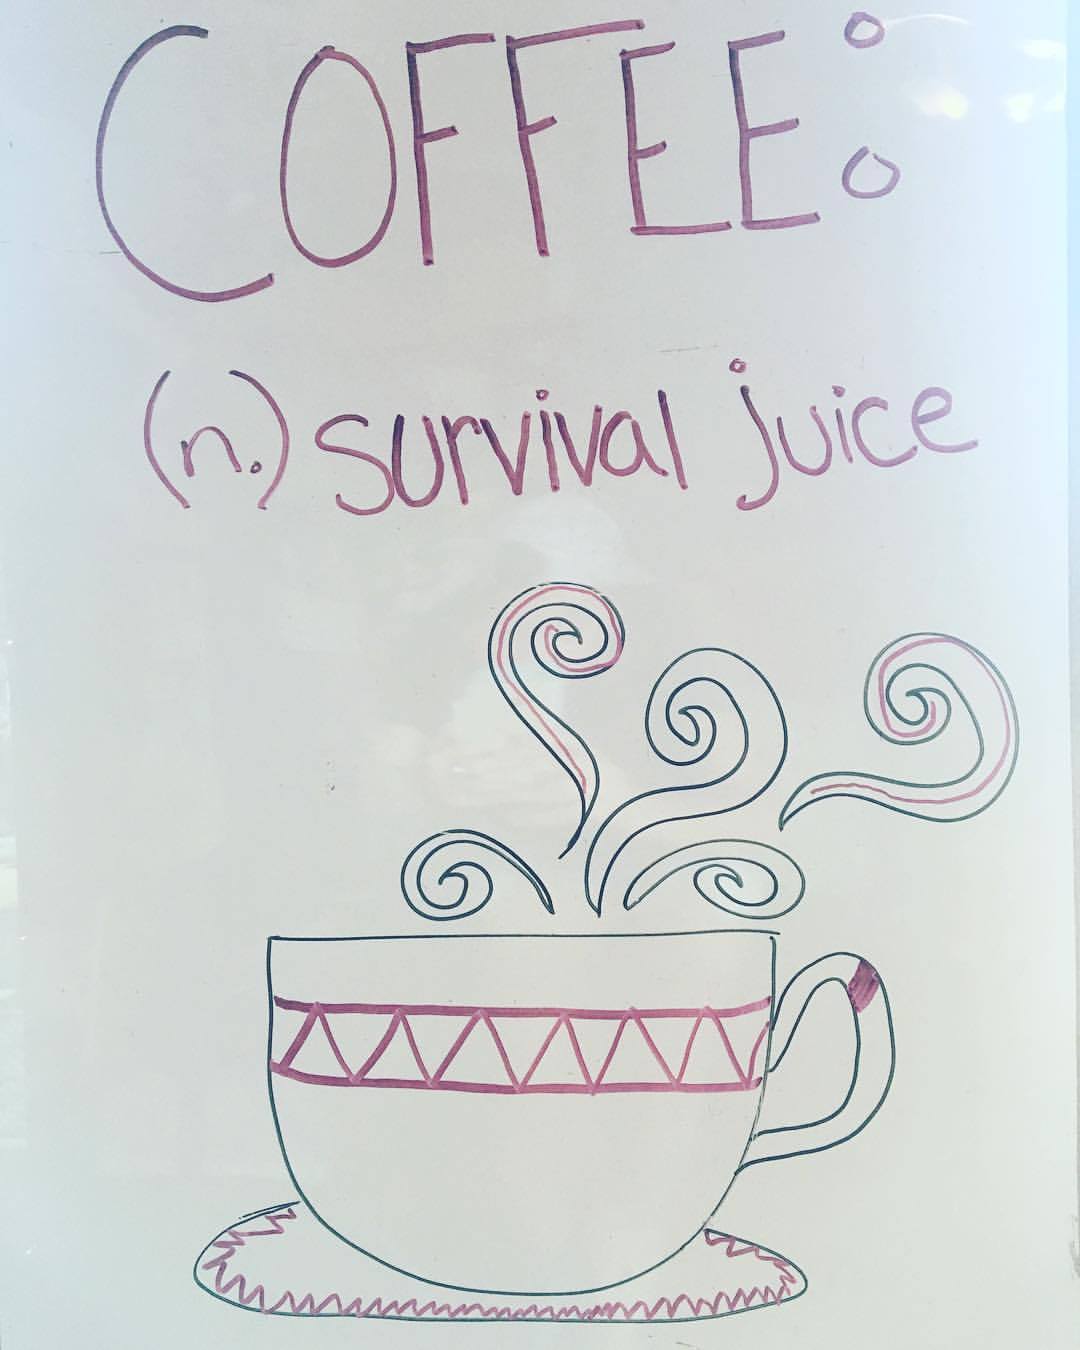 COFFEE:
(n.) survival juice